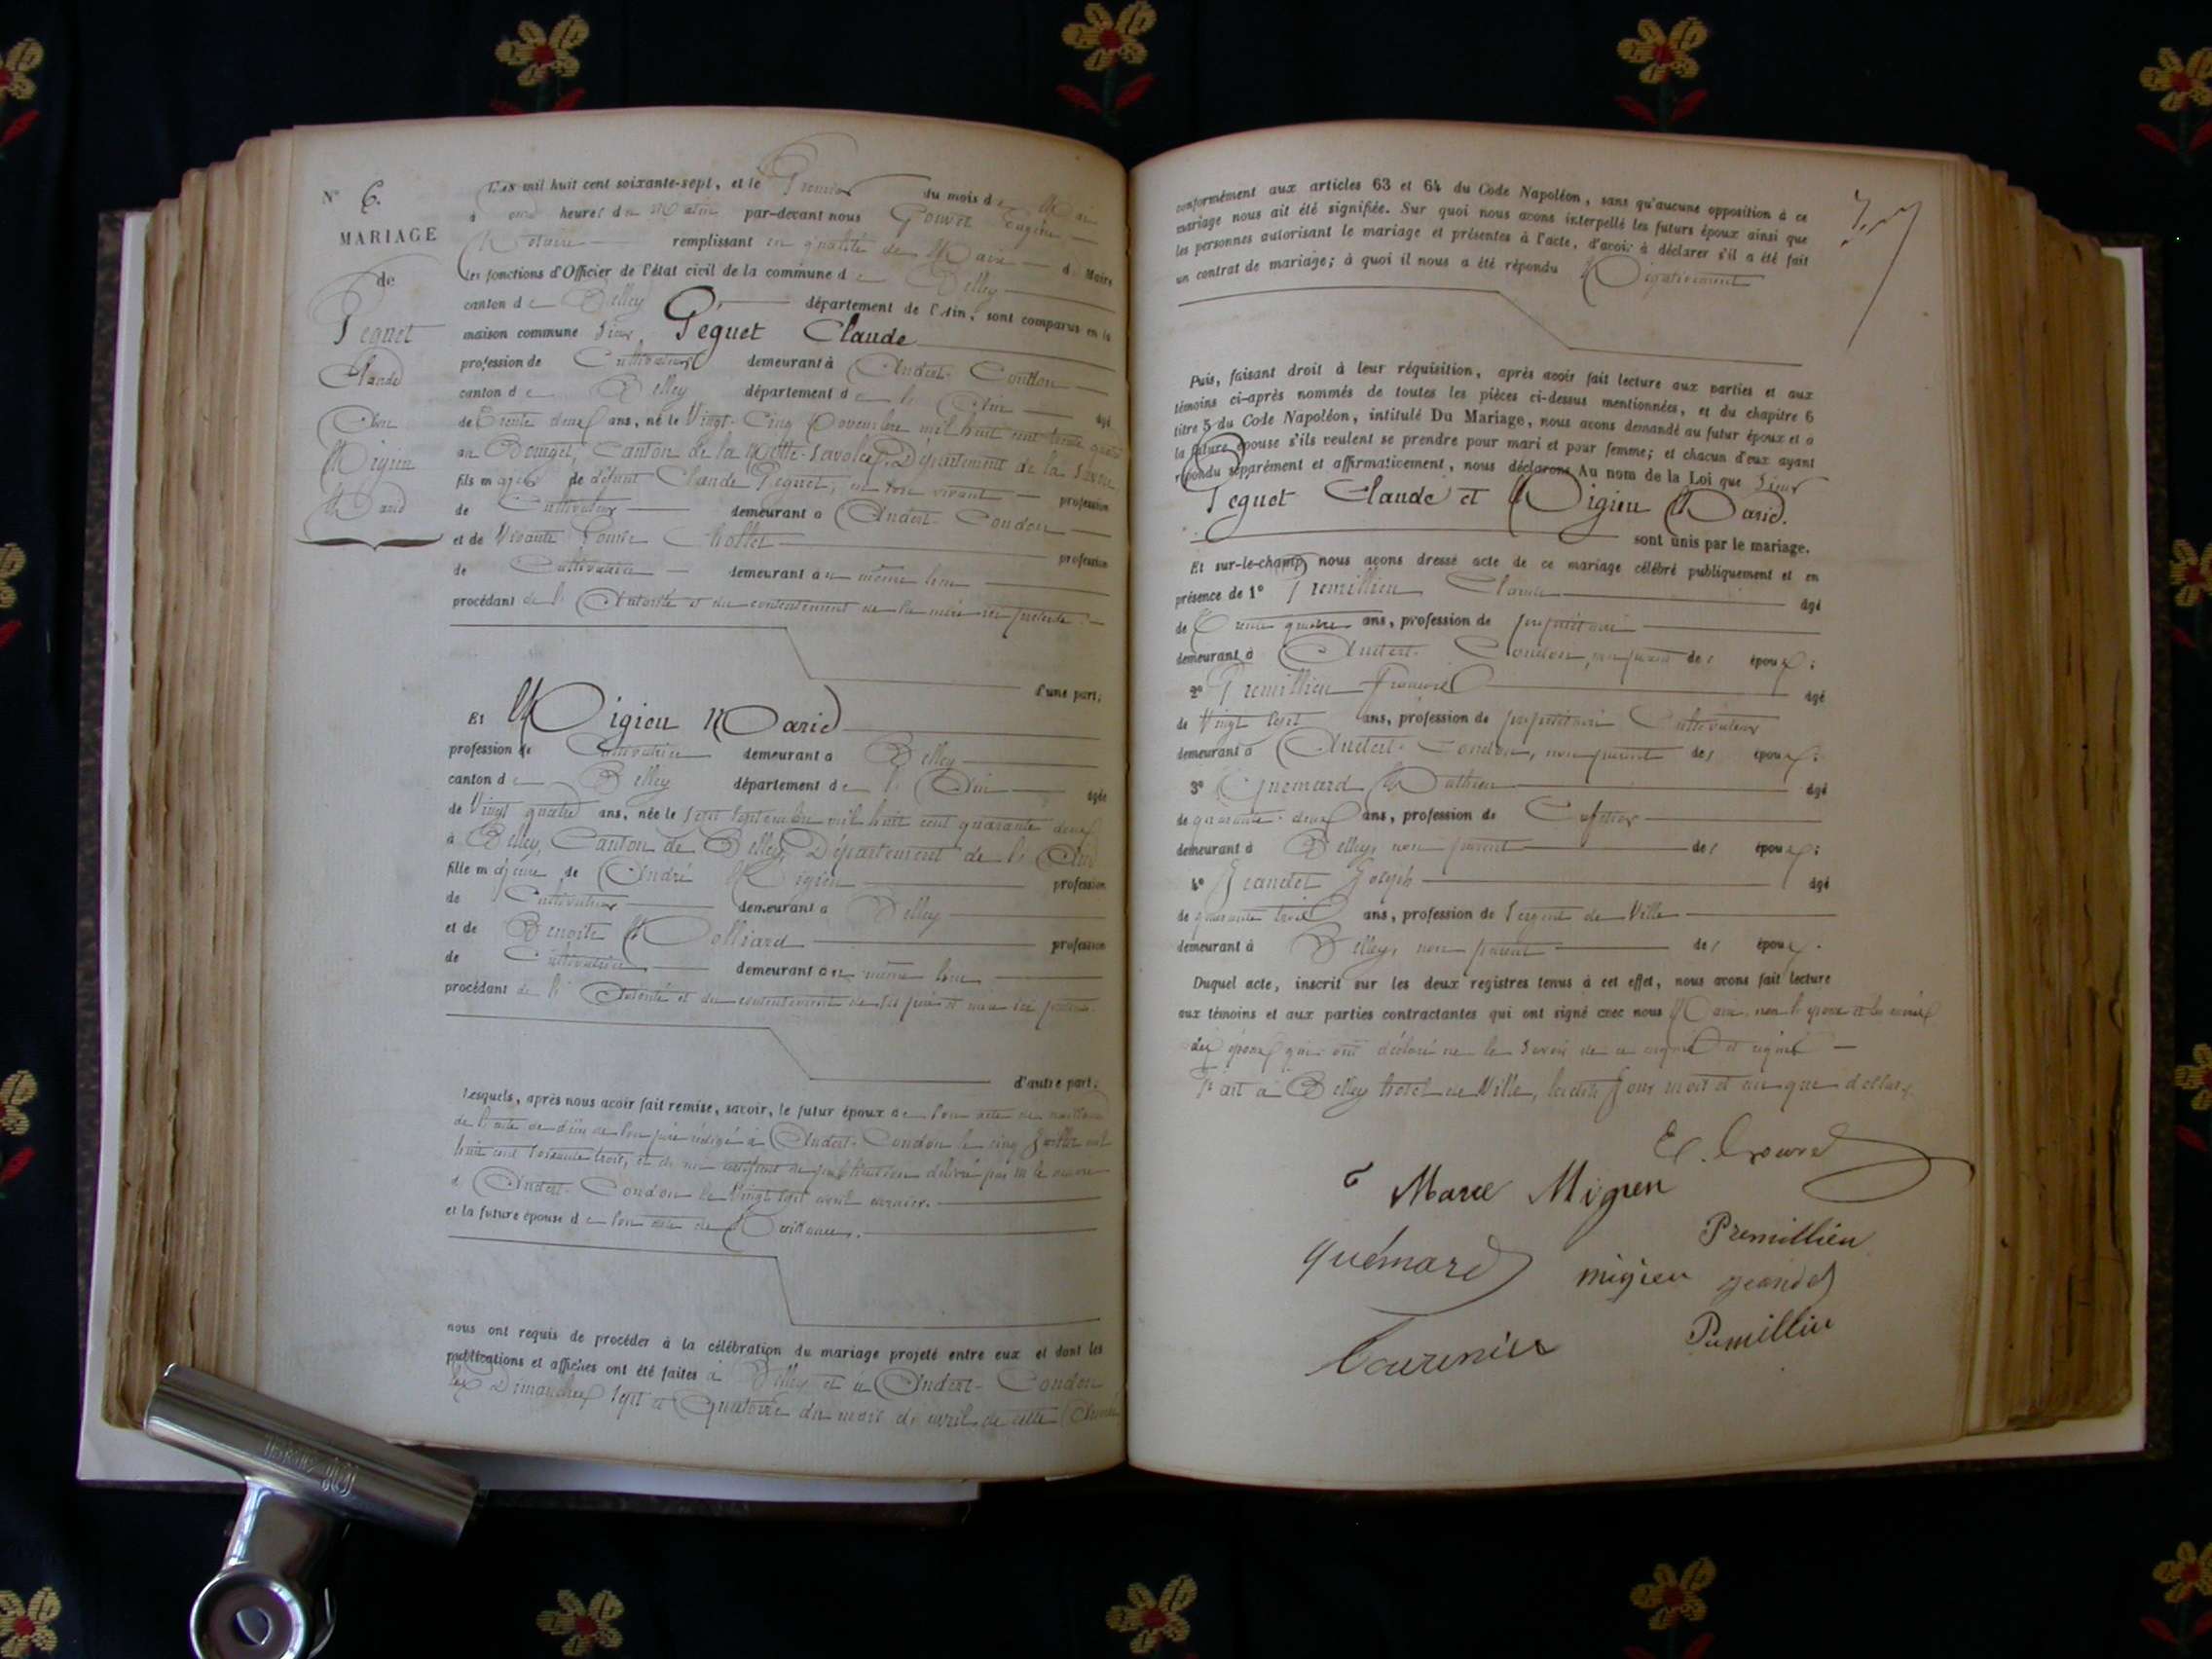 N° 6.
MARIAGE
de
Peguet
Claude
Et
Migieu
Marie
L'an mil huit cent soixante-sept, et le Premier du mois de Mai
à onze heures du Matin par-devant nous Gouvet Eugène
Notaire remplissant en qualité de Maire d Maire
les fonctions d'Officier de l'état civil de la commune de Belley
canton de Belley département de l'Ain, sont comparus en la
maison commune Sieur Peguet Claude
profession de Cultivateur demeurant à Andert-Condon
canton de Belley département de l'Ain âgé
de Trente deux ans, né le Vingt-Cinq Novembre mil huit cent trente quatre
au Bourget, Canton de la Motte-Servolex, Département de la Savoie
fils majeur de défunt Claude Peguet, en son vivant profession
de Cultivateur demeurant à Andert-Condon
et de Vivante Louise Chollet profession
de Cultivatrice demeurant au même lieu
procédant de l'Autorité et du consentement de la mère ici présente.
d'une part;
Et Migieu Marie
profession de Cultivatrice demeurant à Belley
canton de Belley département de l'Ain âgée
de Vingt quatre ans, née le Sept Septembre mil huit cent quarante deux
à Belley, Canton de Belley, Département de l'Ain
fille majeure de André Migieu profession
de Cultivateur demeurant à Belley
et de Benoite Molliard profession
de Cultivatrice demeurant au même lieu
procédant de l'Autorité et du consentement de ses père et mère ici présents.
d'autre part;
Lesquels, après nous avoir fait remise, savoir, le futur époux de son acte de naissance
de l'acte de décès de son père rédigé à Andert-Condon le cinq Juillet mil
huit cent soixante trois, et de un certificat de publication délivré par m. le maire
d'Andert-Condon le Vingt sept avril dernier.
et la future épouse de son acte de Naissance.
nous ont requis de procéder à la célébration du mariage projeté entre eux et dont les
publications et affiches ont été faites à Belley et à Andert-Condon
les Dimanches Sept et Quatorze du mois de avril de cette Année
conformément aux articles 63 et 64 du Code Napoléon, sans qu'aucune opposition à ce
mariage nous ait été signifiée. Sur quoi nous avons interpellé les futurs époux ainsi que
les personnes autorisant le mariage et présentes à l'acte, d'avoir à déclarer s'il a été fait
un contrat de mariage; à quoi il nous a été répondu Négativement
Puis, faisant droit à leur réquisition, après avoir fait lecture aux parties et aux
témoins ci-après nommés de toutes les pièces ci-dessus mentionnées, et du chapitre 6
titre 5 du Code Napoléon, intitulé Du Mariage, nous avons demandé au futur époux et à
la future épouse s'ils veulent se prendre pour mari et pour femme; et chacun d'eux ayant
répondu séparément et affirmativement, nous déclarons Au nom de la Loi que Sieur
Peguet Claude et Migieu Marie.
sont unis par le mariage.
Et sur-le-champ nous avons dressé acte de ce mariage célébré publiquement et en
présence de 1° Premillieu Claude âgé
de Trente quatre ans, profession de propriétaire
demeurant à Andert-Condon, non parent des époux;
2° Premillieu François âgé
de Vingt sept ans, profession de propriétaire Cultivateur
demeurant à Andert-Condon, non parent des époux;
3° Quemard Mathieu âgé
de quarante-deux ans, profession de Cafetier
demeurant à Belley, non parent des époux;
4° Grandet Joseph âgé
de quarante trois ans, profession de Sergent de Ville
demeurant à Belley, non parent des époux.
Duquel acte, inscrit sur les deux registres tenus à cet effet, nous avons fait lecture
aux témoins et aux parties contractantes qui ont signé avec nous Maire, non l'époux et les mères
des époux qui ont déclaré ne le savoir de ce requis et
Fait à Belley hotel de Ville, lesdits Jour mois et an que dessus.
E. Gouvet
Marie Migieu
Premillieu
quémard migieu grandet
Premillieu